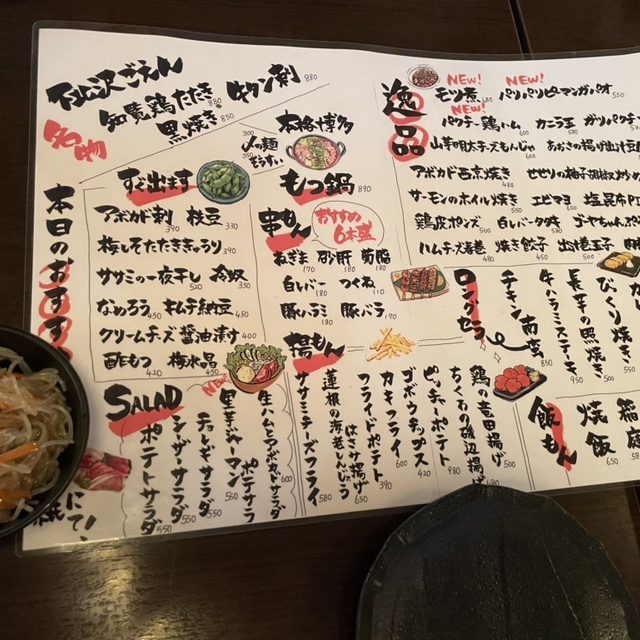 下北沢ごえん
知覧鶏たたき 880
黒焼き 850
牛タン刺 880
名物
本日のおすす
すぐ出ます
アボカド刺 390 枝豆 330
梅しそたたききゅうり 390
ササミの一夜干し 520 冷奴 330
なめろう 450 キムチ納豆 450
クリームチーズ醤油漬け 400
酢もつ 420 梅水晶 450
本格博多
もつ鍋 890
〆の麺 350
ぞうすい 350
串もん
おすすめ
6本盛
ねぎま 190 砂肝 180 ぼんじり
白レバー 180 つくね 110
豚ハラミ 180 豚バラ 170
揚もん
ササミチーズフライ 580
蓮根の海老しんじょう
はさみ揚げ 450
フライドポテト 420
カキフライ 600
ゴボウチップス 420
ピッチーポテト 480
ちくわの磯辺揚げ 450
鶏の竜田揚げ 500
SALAD
NEW
ポテトサラダ 550
シーザーサラダ 550
チョレギサラダ 550
里芋ジャーマン
ポテサラ 560
生ハムアボカドサラダ 600
逸品
NEW!
モツ煮 680
NEW!
パリパリピーマンガパオ
NEW!
パクチー鶏ハム 600 カニ玉 600 ガツパクチ
山芋明太チーズもんじゃ 600 あおさの揚げ出し豆
アボカド西京焼き 480 せせりの柚子胡椒炒め
サーモンのホイル焼き 650 エビマヨ 580 塩昆布PI
鶏皮ポンズ 500 白レバータタキ 500 ゴーヤちゃんぷ
ハムチーズ春巻 480 焼き餃子 450 出汁巻玉子 580
ロングセラ
チキン南蛮 850
牛ハラミステーキ 950
長芋の黒焼き 500
びっくり焼き 550
飯もん
焼飯 650